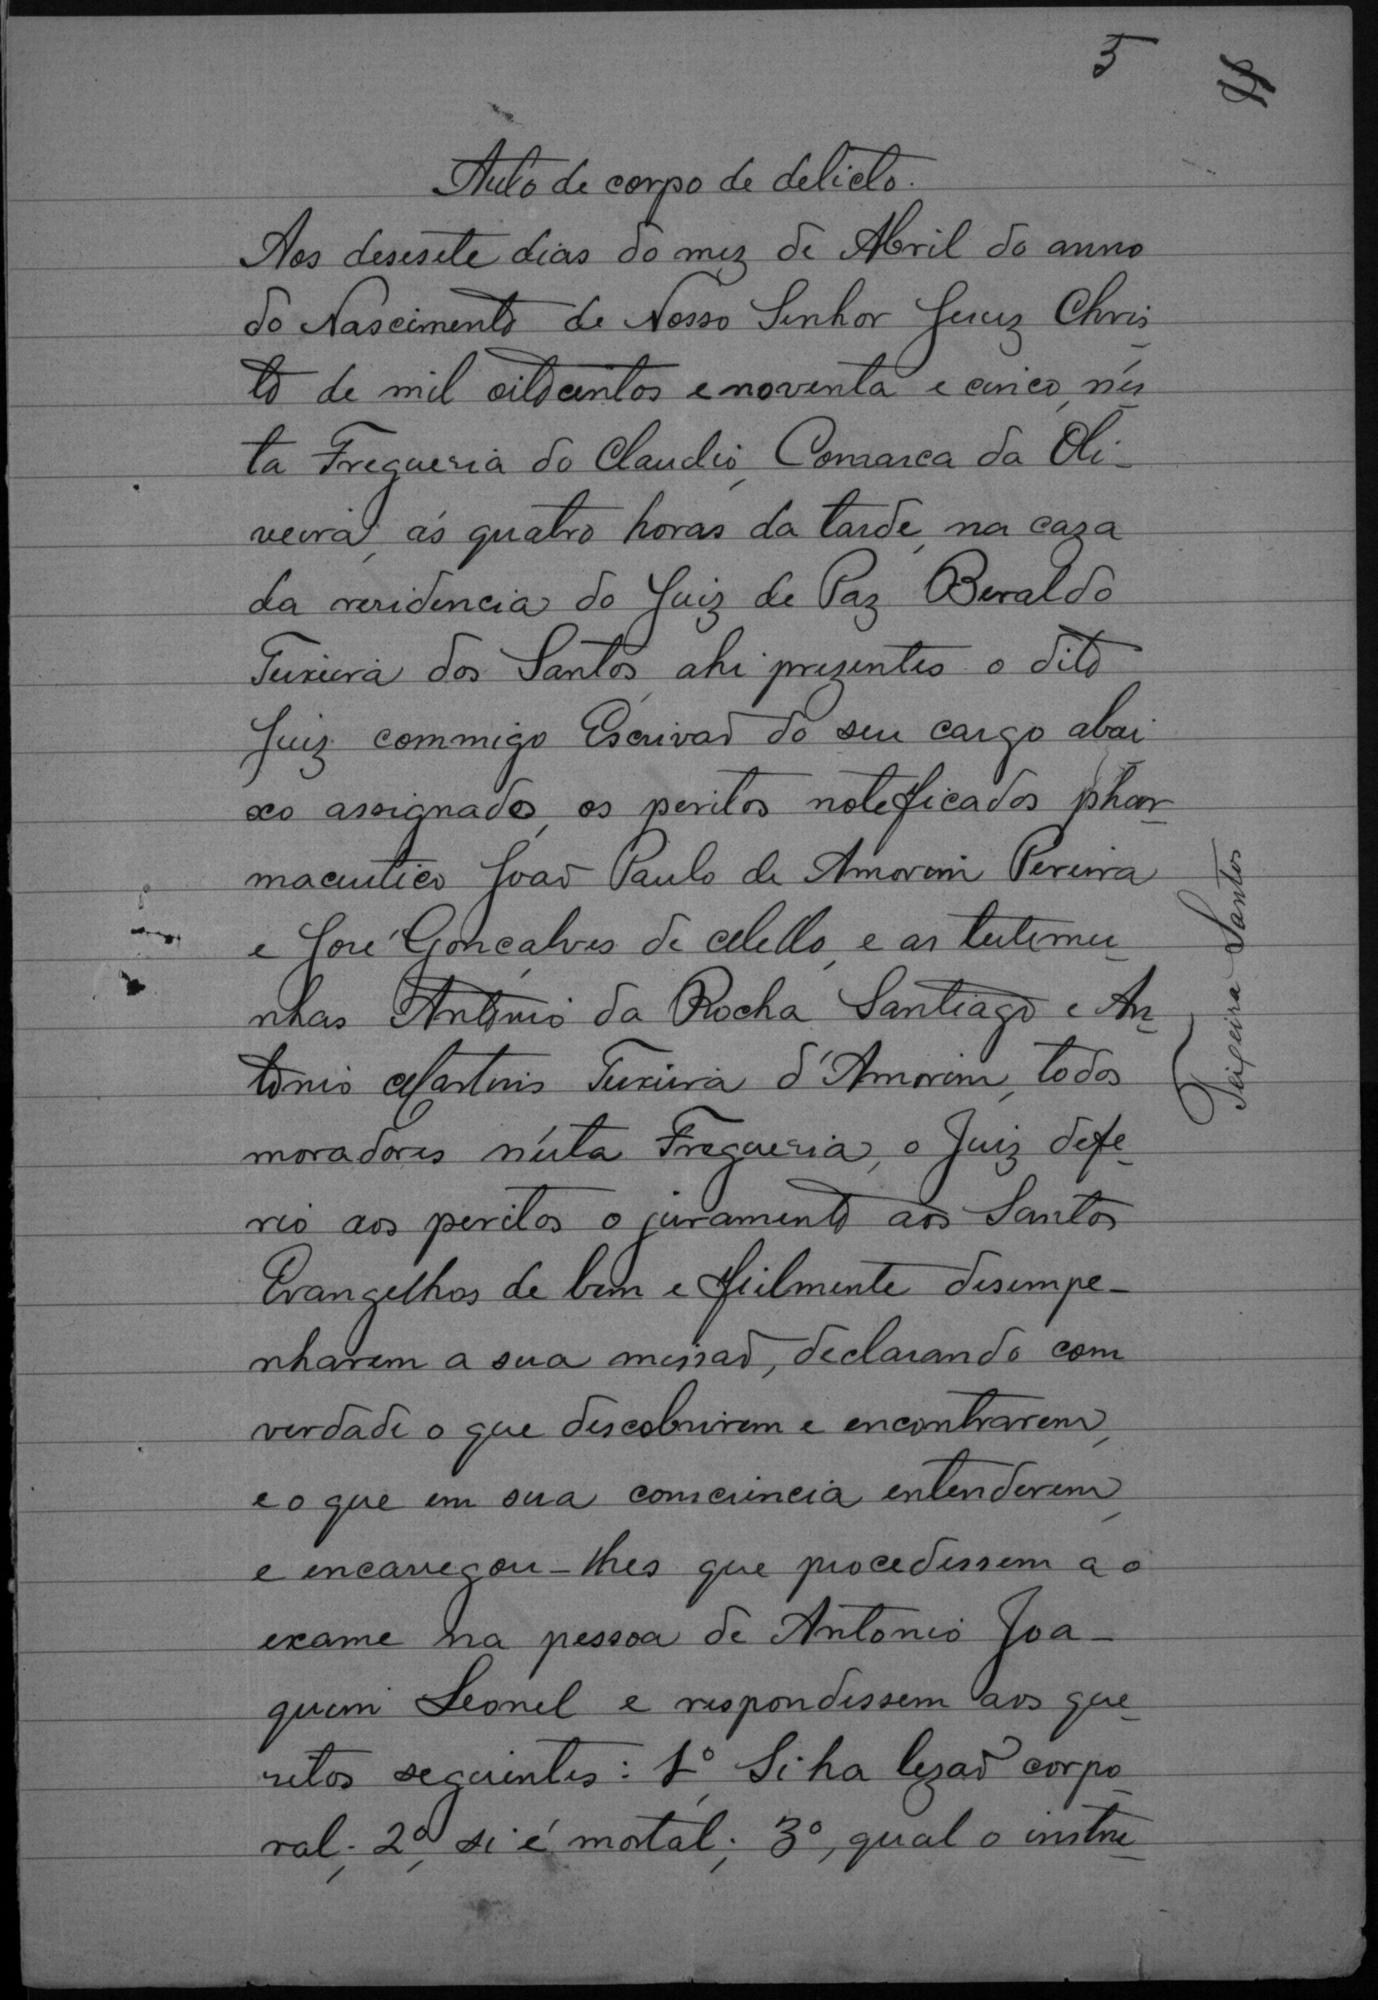 5
Auto de corpo de delicto.
Aos desesete dias do mez de Abril do anno
do Nascimento de Nosso Senhor Jesuz Chris
to de mil oitocentos e noventa e cinco, nés
ta Freguesia do Claudio, Comarca da Oli-
veira, ás quatro horas da tarde, na caza
da residencia do Juiz de Paz Beraldo
Teixeira dos Santos, ahi prezentes o dito
Juiz commigo Escrivaõ do seu cargo abai
xo assignado, os peritos noteficados phar
maceutico Joaõ Paulo de Amorim Pereira
e José Gonçalves de Mello, e as testemu
nhas Antonio da Rocha Santiago e An
tonio Martins Teixeira d'Amorim, todos
moradores nésta Freguesia, o Juiz defe
rio aos peritos o juramento aos Santos
Evangelhos de bem e fielmente desempe-
nharem a sua missaõ, declarando com
verdade o que descobrirem e encontrarem,
e o que em sua consciencia entenderem,
e encarregou-lhes que procedessem a o
exame na pessoa de Antonio Joa-
quim Leonel e respondessem aos que
sitos seguintes: 1º, Si ha lezaõ corpo
ral; 2º, si é mortal; 3º, qual o instru
Teixeira Santos